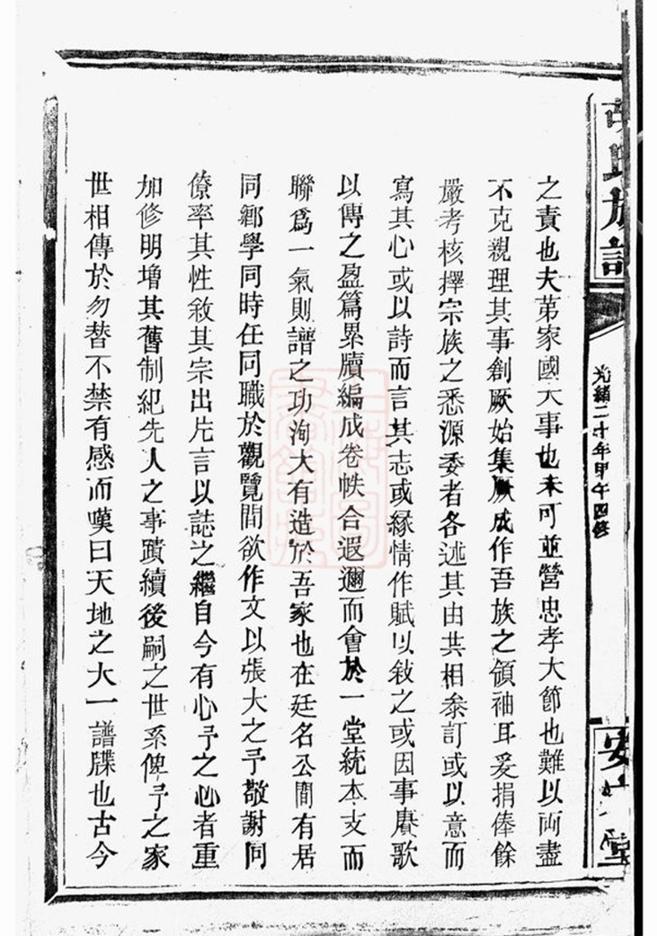 胡氏族譜
光緒二十年甲午四修
安 堂
之責也夫第家國大事也未可並營忠孝大節也難以両盡
不克親理其事創厥始集厥成作吾族之領袖耳爰捐俸餘
嚴考核擇宗族之悉源委者各述其由共相叅訂或以意而
寫其心或以詩而言其志或緣情作賦以敍之或因事賡歌
以傳之盈篇累牘編成卷帙合遐邇而會於一堂統本支而
聯爲一氣則譜之功洵大有造於吾家也在廷名公間有居
同鄉學同時任同職於觀覽間欲作文以張大之予敬謝同
僚率其性敘其宗出片言以誌之繼自今有心予之心者重
加修明增其舊制紀先人之事蹟續後嗣之世系俾予之家
世相傳於勿替不禁有感而嘆曰天地之大一譜牒也古今